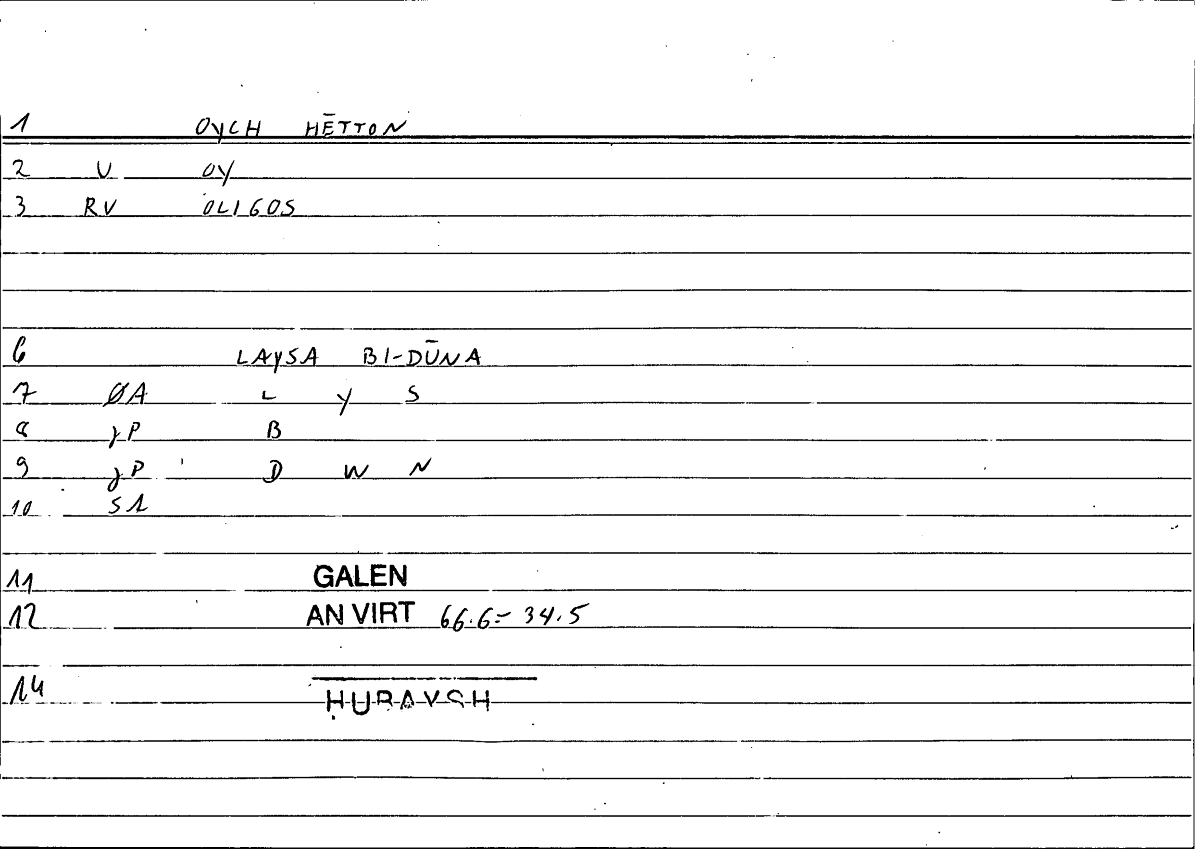 1 OYCH HĒTTON
2 V OY
3 RV OLIGOS
6 LAYSA BI-DŪNA
7 ØA L Y S
8 γP B
9 γP D W N
10 S1
11 GALEN
12 AN VIRT 66.6= 34.5
14 ḤUBAYSH